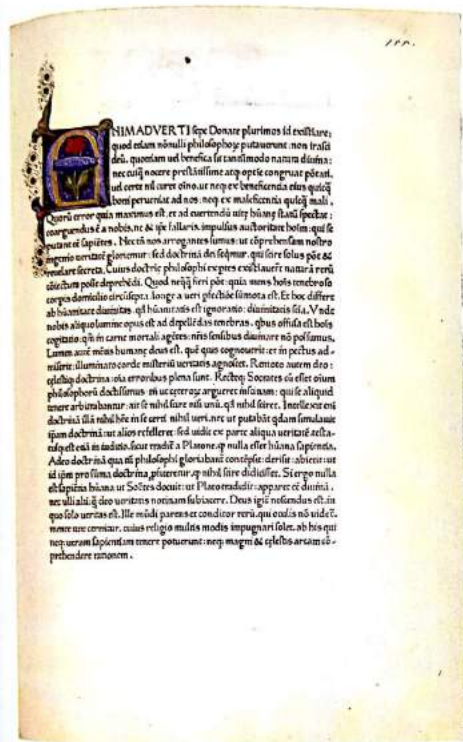 ANIMADVERTI sepe Donate plurimos id existiare;
quod etiam nōnulli philosophoꝝ putauerunt: non irasci
deū. quoniam uel benefica sit tantūmodo natura diuina:
nec cuiq̄ nocere prestātissime atq̄ optie congruat potēti.
uel certe nil curet oīno. ut neq̄ ex beneficentia eius quicq̄
boni perueniat ad nos: neq̄ ex maleficentia quicq̄ mali.
Quorū error quia maximus est. et ad euertendū uitę hūanę statū spectat:
coarguendus ē a nobis. ne & ipse fallaris. impulsus auctoritate hoīm: qui se
putant eē sapiētes. Nec tn̄ nos arrogantes sumus: ut cōprehensam nostro
ingenio ueritatē gloriemur: sed doctrinā dei seq̄mur. qui scire solus pōt &
reuelare secreta. Cuius doctrinę philosophi expertes existiauerūt naturā rerū
cōiectura posse deprehēdi. Quod neq̄q̄ fieri pōt: quia mens hoīs tenebroso
corporis domicilio circūsepta. longe a ueri pfectiōe sūmota est. Et hoc differt
ab hūanitate diuinitas. qđ hūanitatis est ignoratio: diuinitatis scīa. Vnde
nobis aliquo lumine opus est ad depellēdas tenebras. quibus offusa est hoīs
cogitatio: qm̄ in carne mortali agētes: nr̄is sensibus diuinare nō possumus.
Lumen autē mētis humanę deus est. quē quis cognouerit: et in pectus ad-
miserit: illuminato corde misteriū ueritatis agnoscet. Remoto autem deo:
cęlestiq̄ doctrina: oīa erroribus plena sunt. Recteq̄ Socrates cū esset oīum
philosophorū doctissimus: tn̄ ut ceteroꝝ argueret inscitiam: qui se aliquid
tenere arbitrabantur: ait se nihil scire nisi unū. qđ nihil sciret. Intellexit eni
doctrinā illā nihil hr̄e in se certi. nihil ueri. nec ut putabāt qdam simulauit
ipam doctrinā: ut alios refelleret: sed uidit ex parte aliqua ueritatē. testa-
tusq̄ est etiā in iudicio. sicut tradit̄ a Platone. q̄ nulla esset hūana sapiētia.
Adeo doctrinā qua tū philosophi gloriabant̄ contēpsit: derisit: abiecit: ut
id ipm pro summa doctrina profiteretur. q̄ nihil scire didicisset. Si ergo nulla
est sapiētia hūana ut Socrates docuit: ut Plato tradidit: apparet eē diuinā.
nec ulli alii. q̄ deo ueritatis notitiam subiacere. Deus igit̄ noscendus est. in
quo solo ueritas est. Ille mūdi parens et conditor rerū. qui oculis nō uidet̄.
mente uix cernitur. cuius religio multis modis impugnari solet. ab his qui
neq̄ ueram sapientiam tenere potuerunt: neq̄ magni & cęlestis arcani cō-
prehendere rationem.